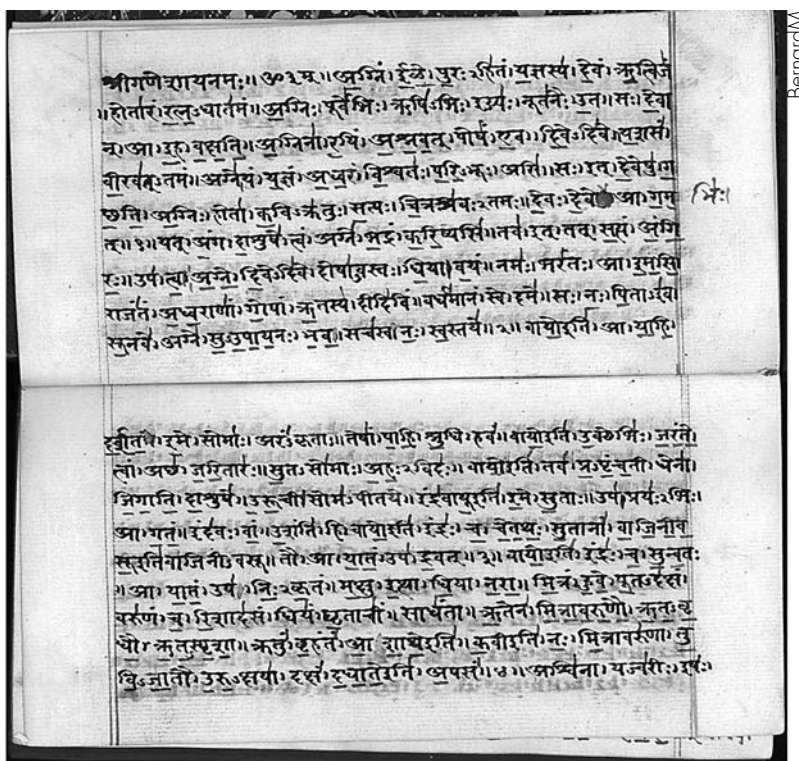 श्रीगणेशायनमः॥ॐ३म्॥अग्निं।ईळे।पुरःऽहितं।यज्ञस्य।देवं।ऋत्विजं
॥होतारं।रत्नऽधातमं॥अग्निः।पूर्वेभिः।ऋषिऽभिः।ईड्यः।नूतनैः।उत॥सः।देवा
न्।आ।इह।वक्षति॥अग्निना।रयिं।अश्नवत्।पोषं।एव।दिवेऽदिवे॥यशसं
वीरवत्ऽतमं॥अग्ने।यं।यज्ञं।अध्वरं।विश्वतः।परिऽभूः।असि॥सः।इत्।देवेषु।ग
च्छति।अग्निः।होता।कविऽक्रतुः।सत्यः।चित्रश्रवःऽतमः॥देवः।देवे आ।गम
भिः।
त्॥१॥यत्।अंग।दाशुषे।त्वं।अग्ने।भद्रं।करिष्यसि॥तव।इत्।तत्।सत्यं।अंगि
रः॥उप।त्वा।अग्ने।दिवेऽदिवे।दोषाऽवस्तः।धिया।वयं॥नमः।भरंतः।आ।इमसि॥
राजंतं।अध्वराणां।गोपां।ऋतस्य।दीदिविं॥वर्धमानं।स्वे।दमे॥सः।नः।पिताऽइव।
सूनवे।अग्ने।सुऽउपायनः।भव॥सचस्व।नः।स्वस्तये॥२॥वायोइति।आ।याहि।
दर्शत।इमे।सोमाः।अरंऽकृताः॥तेषां।पाहि।श्रुधि।हवं॥वायोइति।उक्थेभिः।जरंते।
त्वां।अच्छ।जरितारः॥सुतऽसोमाः।अहःऽविदः॥वायोइति।तव।प्रऽपृंचती।धेना।
जिगाति।दाशुषे॥उरूची।सोमऽपीतये॥इंद्रवायूइति।इमे।सुताः॥उप।प्रयःऽभिः।
आ।गतं॥इंदवः।वां।उशंति।हि॥वायोइति।इंद्रः।च।चेतथः।सुतानां।वाजिनीव
सूइतिवाजिनीऽवसू॥तौ।आ।यातं।उप।द्रवत्॥३॥वायोइति।इंद्रः।च।सुन्वतः
॥आ।यातं।उप।निःऽकृतं॥मक्षु।इत्था।धिया।नरा॥मित्रं।हुवे।पूतऽदक्षं।
वरुणं।च।रिशादसं॥धियं।घृताचीं।साधंता॥ऋतेन।मित्रावरुणौ।ऋतऽवृ
धौ।ऋतऽस्पृशा॥क्रतुं।बृहंतं।आ शाथेइति॥कवीइति।नः।मित्रावरुणा।तु
विऽजातौ।उरुऽक्षया॥दक्षं।दधातेइति।अपसं॥४॥अश्विना।यज्वरीः।इषः।